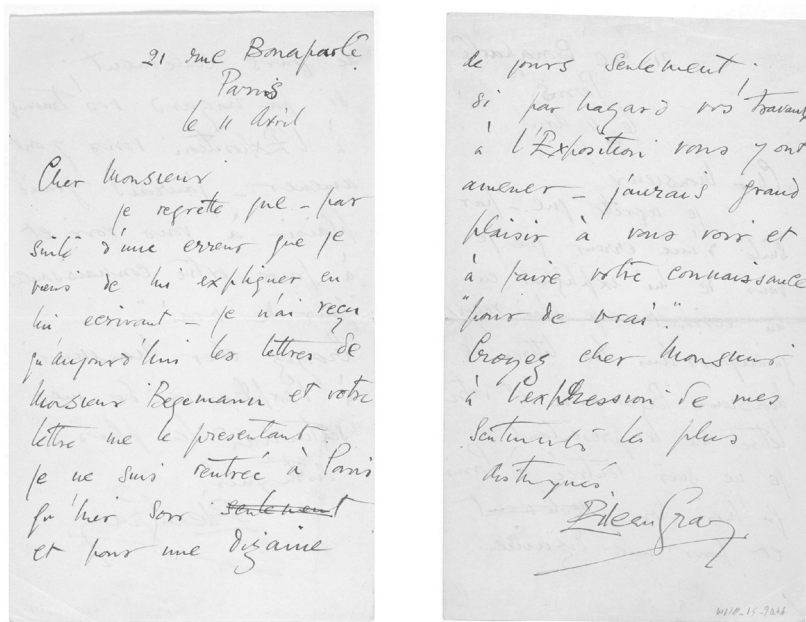 21 rue Bonaparte
Paris
le 11 Avril
Cher Monsieur
je regrette que – par
suite d'une erreur que je
viens de lui expliquer en
lui ecrivant – je n'ai reçu
qu'aujourd'hui les lettres de
Monsieur Begemann et votre
lettre me le presentant.
je ne suis rentrée à Paris
qu'hier soir seulement
et pour une dizaine
de jours seulement ;
si par hazard vos travaux
à l'Exposition vous y ont
amener – j'aurais grand
plaisir à vous voir et
à faire votre connaissance
"pour de vrai".
Croyez cher Monsieur
à l'expression de mes
sentiments les plus
distingués
Eileen Gray